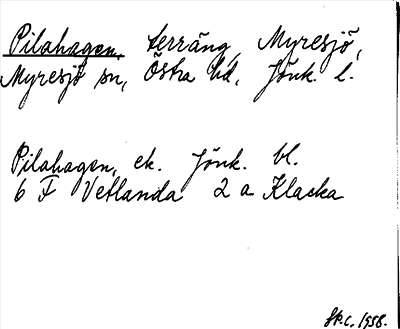 Pilahagen, terräng, Myresjö,
Myresjö sn, Östra hd, Jönk. l.
Pilahagen, ek. Jönk. bl.
6 F Vetlanda 2 a Klacka
Sk.c. 1958.